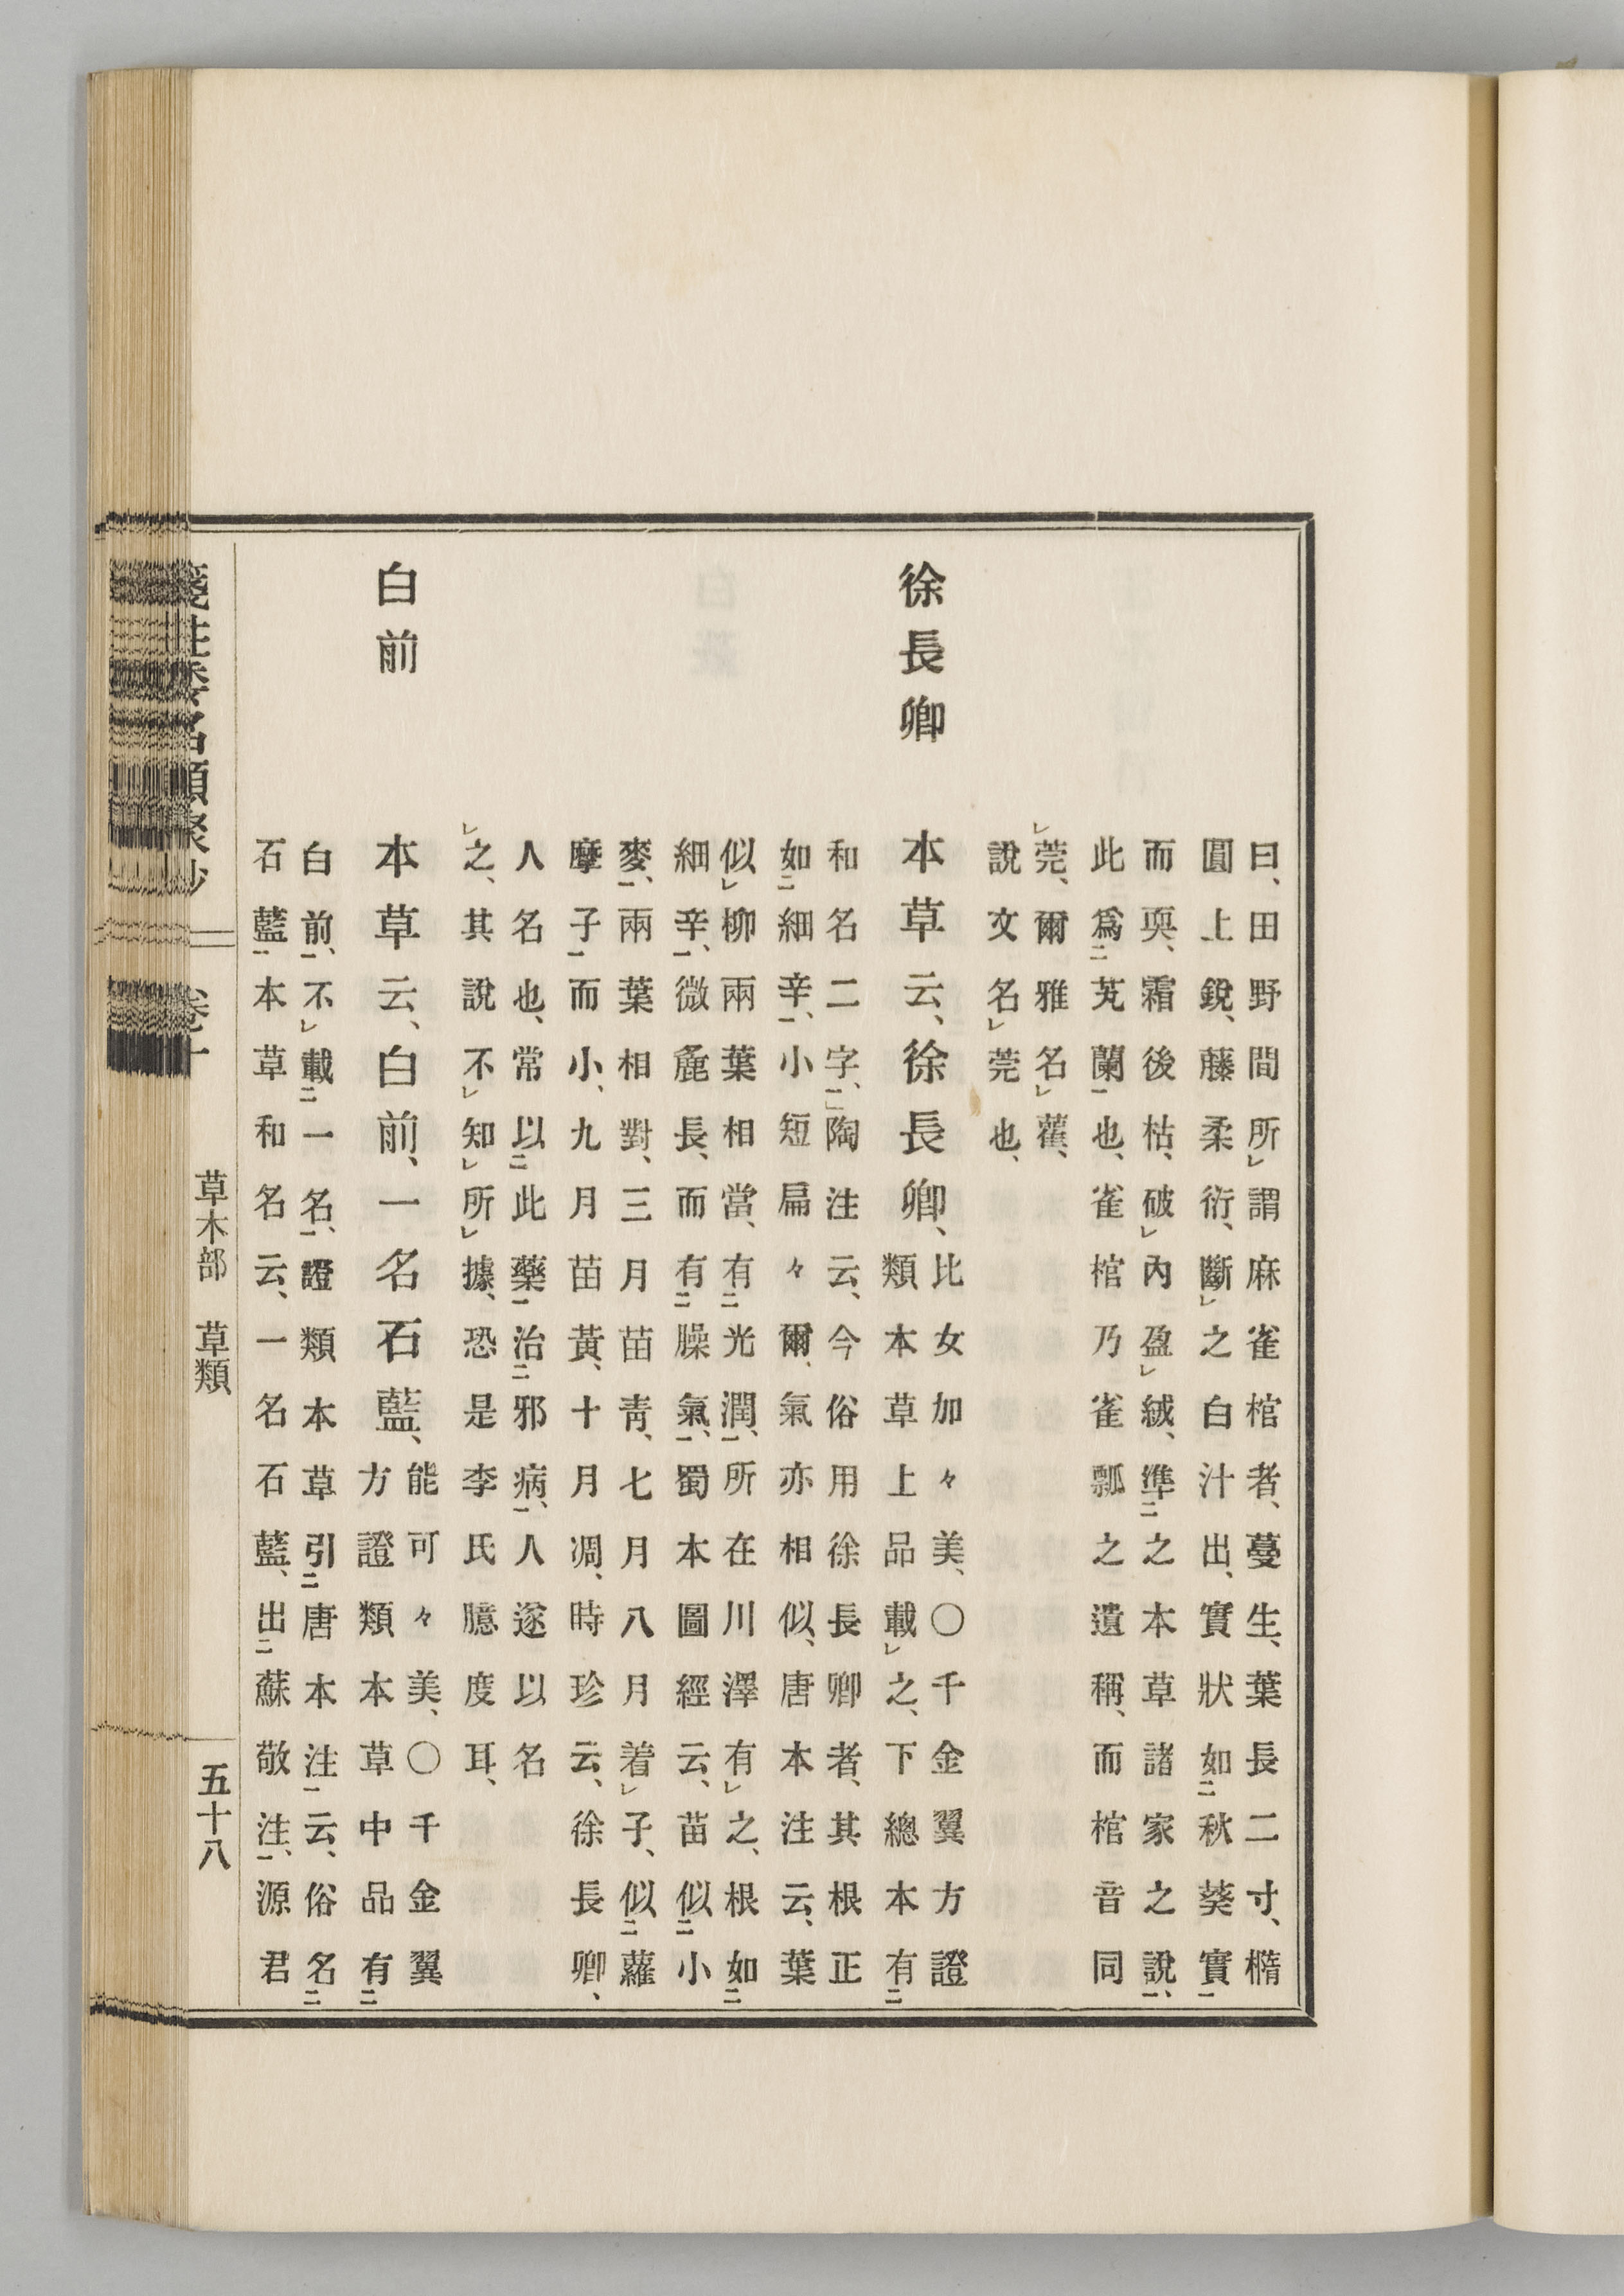 曰、田野間所㆑謂麻雀棺者、蔓生、葉長二寸、橢
圓上銳、藤柔衍、斷㆑之白汁出、實狀如㆓秋葵實㆒
而耎、霜後枯、破㆑內盈㆑絨、準㆓之本草諸家之說㆒、
此爲㆓芄蘭㆒也、雀棺乃雀瓢之遺稱、而棺音同
㆑莞、爾雅名㆑雚、
說文名㆑莞也、
徐長卿
本草云、徐長卿、
比女加々美、〇千金翼方證
類本草上品載㆑之、下總本有㆓
和名二字㆒、陶注云、今俗用徐長卿者、其根正
如㆓細辛㆒、小短扁々爾、氣亦相似、唐本注云、葉
似㆑柳兩葉相當、有㆓光潤㆒、所在川澤有㆑之、根如㆓
細辛㆒、微麁長、而有㆓臊氣㆒、蜀本圖經云、苗似㆓小
麥㆒、兩葉相對、三月苗靑、七月八月着㆑子、似㆓蘿
摩子㆒而小、九月苗黃、十月凋、時珍云、徐長卿、
人名也、常以㆓此藥㆒治㆓邪病㆒、人遂以名
㆑之、其說不㆑知㆑所㆑據、恐是李氏臆度耳、
白前
本草云、白前、一名石藍、
能可々美、〇千金翼
方證類本草中品有㆓
白前㆒、不㆑載㆓一名㆒、證類本草引㆓唐本注㆒云、俗名㆓
石藍㆒本草和名云、一名石藍、出㆓蘇敬注㆒、源君
草木部 草類
五十八